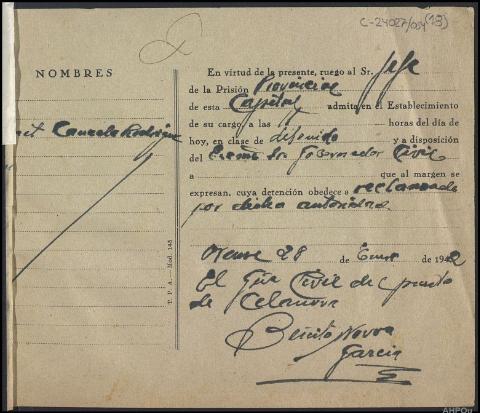 C-24027/004 (13)
NOMBRES
Canzela Rodrigue
En virtud de la presente, ruego al Sr. Jefe
de la Prisión Provincial
de esta Capital admita en el Establecimiento
de su cargo, a las horas del día de
hoy, en clase de detenido y a disposición
del Excmo Sr Gobernador Civil
a que al margen se
expresan, cuya detención obedece a reclamado
por dicha autoridad.
Orense 28 de Enero de 1942
El Gua Civil de puesto
de Celanova
Benito Novoa
Garcia
T. P. A. — Mod. 145
AHPOu